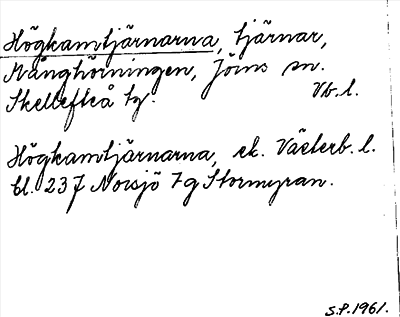 Högkamtjärnarna, tjärnar,
Månghörningen, Jörns sn.
Skellefteå tg. Vb. l.
Högkamtjärnarna, ek. Västerb. l.
bl. 237 Norsjö 7g Stormyran.
S.P. 1961.